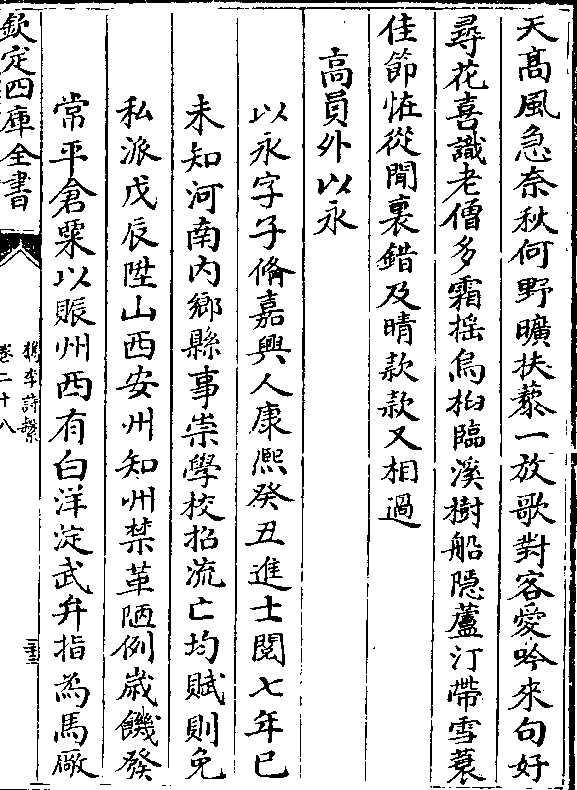 天髙風急奈秋何野曠扶藜一放歌對客愛吟來句好
尋花喜識老僧多霜揺烏桕臨溪樹船隠蘆汀帶雪蓑
佳節恠從閒裏錯及晴款款又相過
高員外以永
以永字子脩嘉興人康熈癸丑進士閱七年已
未知河南内鄉縣事崇學校招流亡均賦則免
私派戊辰陞山西安州知州禁革陋例嵗饑發
常平倉粟以賑州西有白洋淀武弁指為馬厰
欽定四庫全書
檇李詩繫
卷二十八